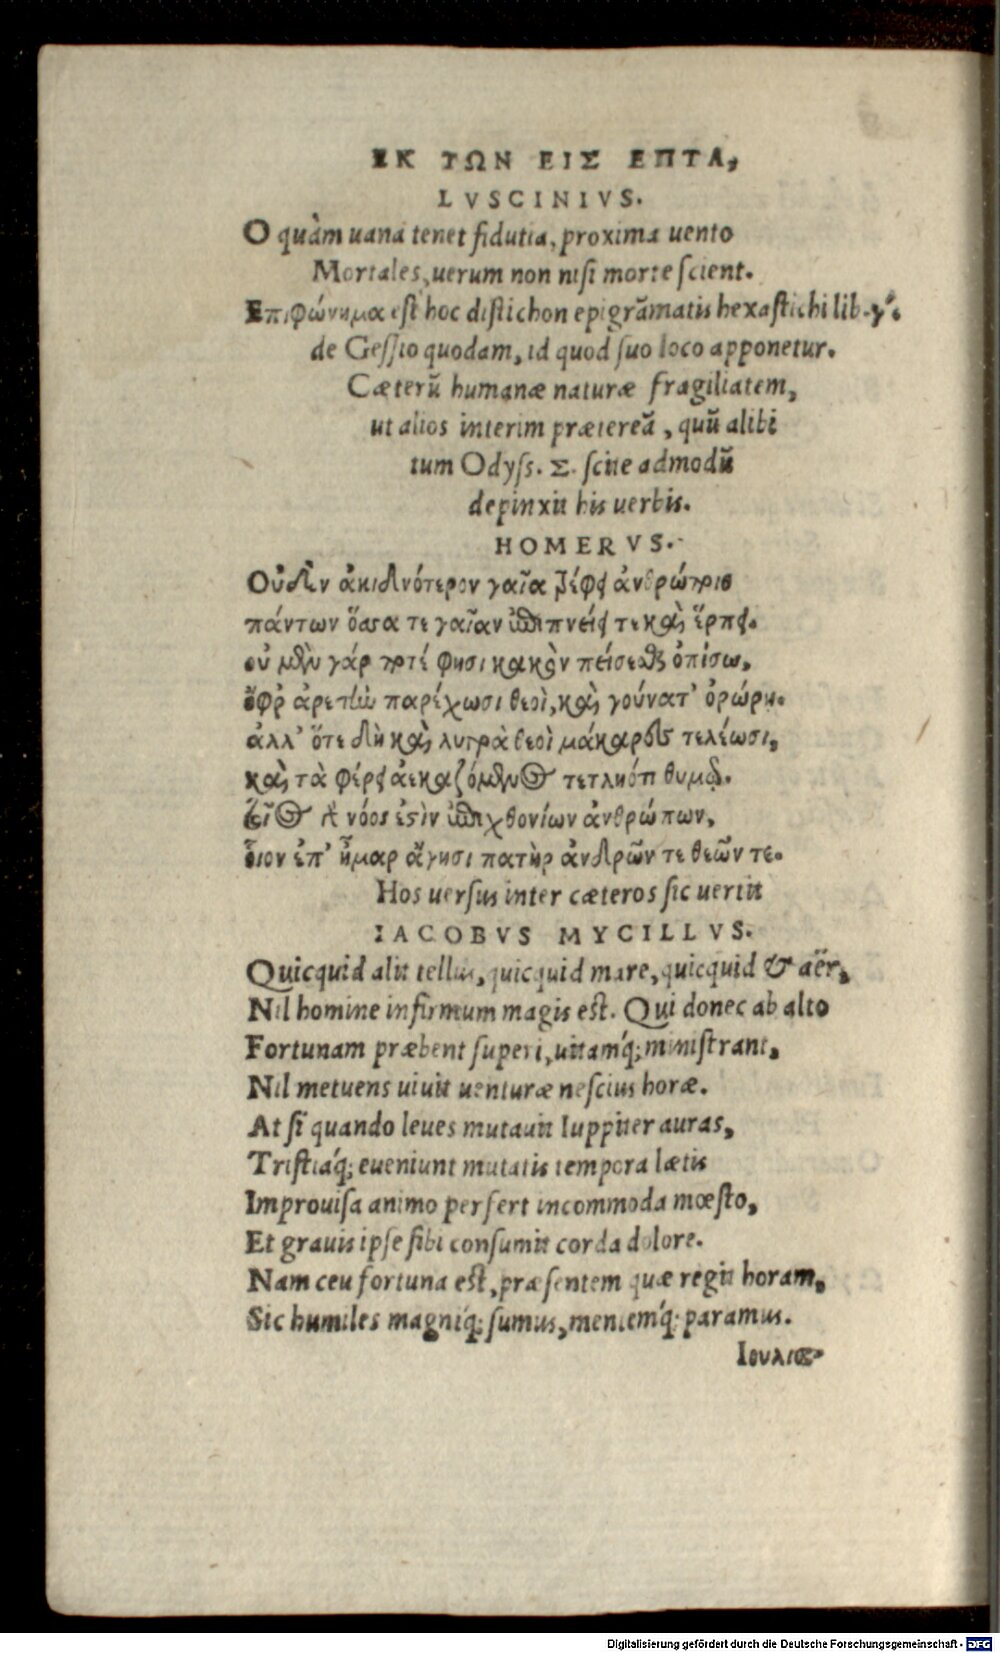 ΕΚ ΤΩΝ ΕΙΣ ΕΠΤΑ,
LVSCINIVS.
O quàm uana tenet fidutia, proxima uento
Mortales, uerum non nisi morte scient.
Επιφώνημα est hoc distichon epigrāmatis hexastichi lib. γ'.
de Gessio quodam, id quod suo loco apponetur.
Cæterū humanæ naturæ fragiliatem,
ut alios interim prætereā, quū alibi
tum Odyss. Σ. scite admodū
depinxit his uerbis.
HOMERVS.
Οὐδὲν ἀκιδνότερον γαῖα τρέφει ἀνθρώποιο
πάντων ὅσσα τε γαῖαν ἐπιπνείει τε καὶ ἕρπει.
οὐ μὲν γάρ ποτέ φησι κακὸν πείσεσθαι ὀπίσω,
ὄφρ ἀρετὴν παρέχωσι θεοὶ, καὶ γούνατ' ὀρώρη.
ἀλλ' ὅτε δὴ καὶ λυγρὰ θεοὶ μάκαρες τελέωσι,
καὶ τὰ φέρει ἀεκαζόμενος τετληότι θυμῷ.
τοῖος γὰρ νόος ἐστὶν ἐπιχθονίων ἀνθρώπων,
οἷον ἐπ' ἦμαρ ἄγησι πατὴρ ἀνδρῶν τε θεῶν τε.
Hos uersus inter cæteros sic uertit
IACOBVS MYCILLVS.
Quicquid alit tellus, quicquid mare, quicquid & aër,
Nil homine infirmum magis est. Qui donec ab alto
Fortunam præbent superi, uitamq́; ministrant,
Nil metuens uiuit uenturæ nescius horæ.
At si quando leues mutauit Iuppiter auras,
Tristiaq́; eueniunt mutatis tempora lætis
Improuisa animo perfert incommoda mœsto,
Et grauis ipse sibi consumit corda dolore.
Nam ceu fortuna est, præsentem quæ regit horam,
Sic humiles magniq́; sumus, mentemq́; paramus.
Ιουλια-
Digitalisierung gefördert durch die Deutsche Forschungsgemeinschaft - DFG